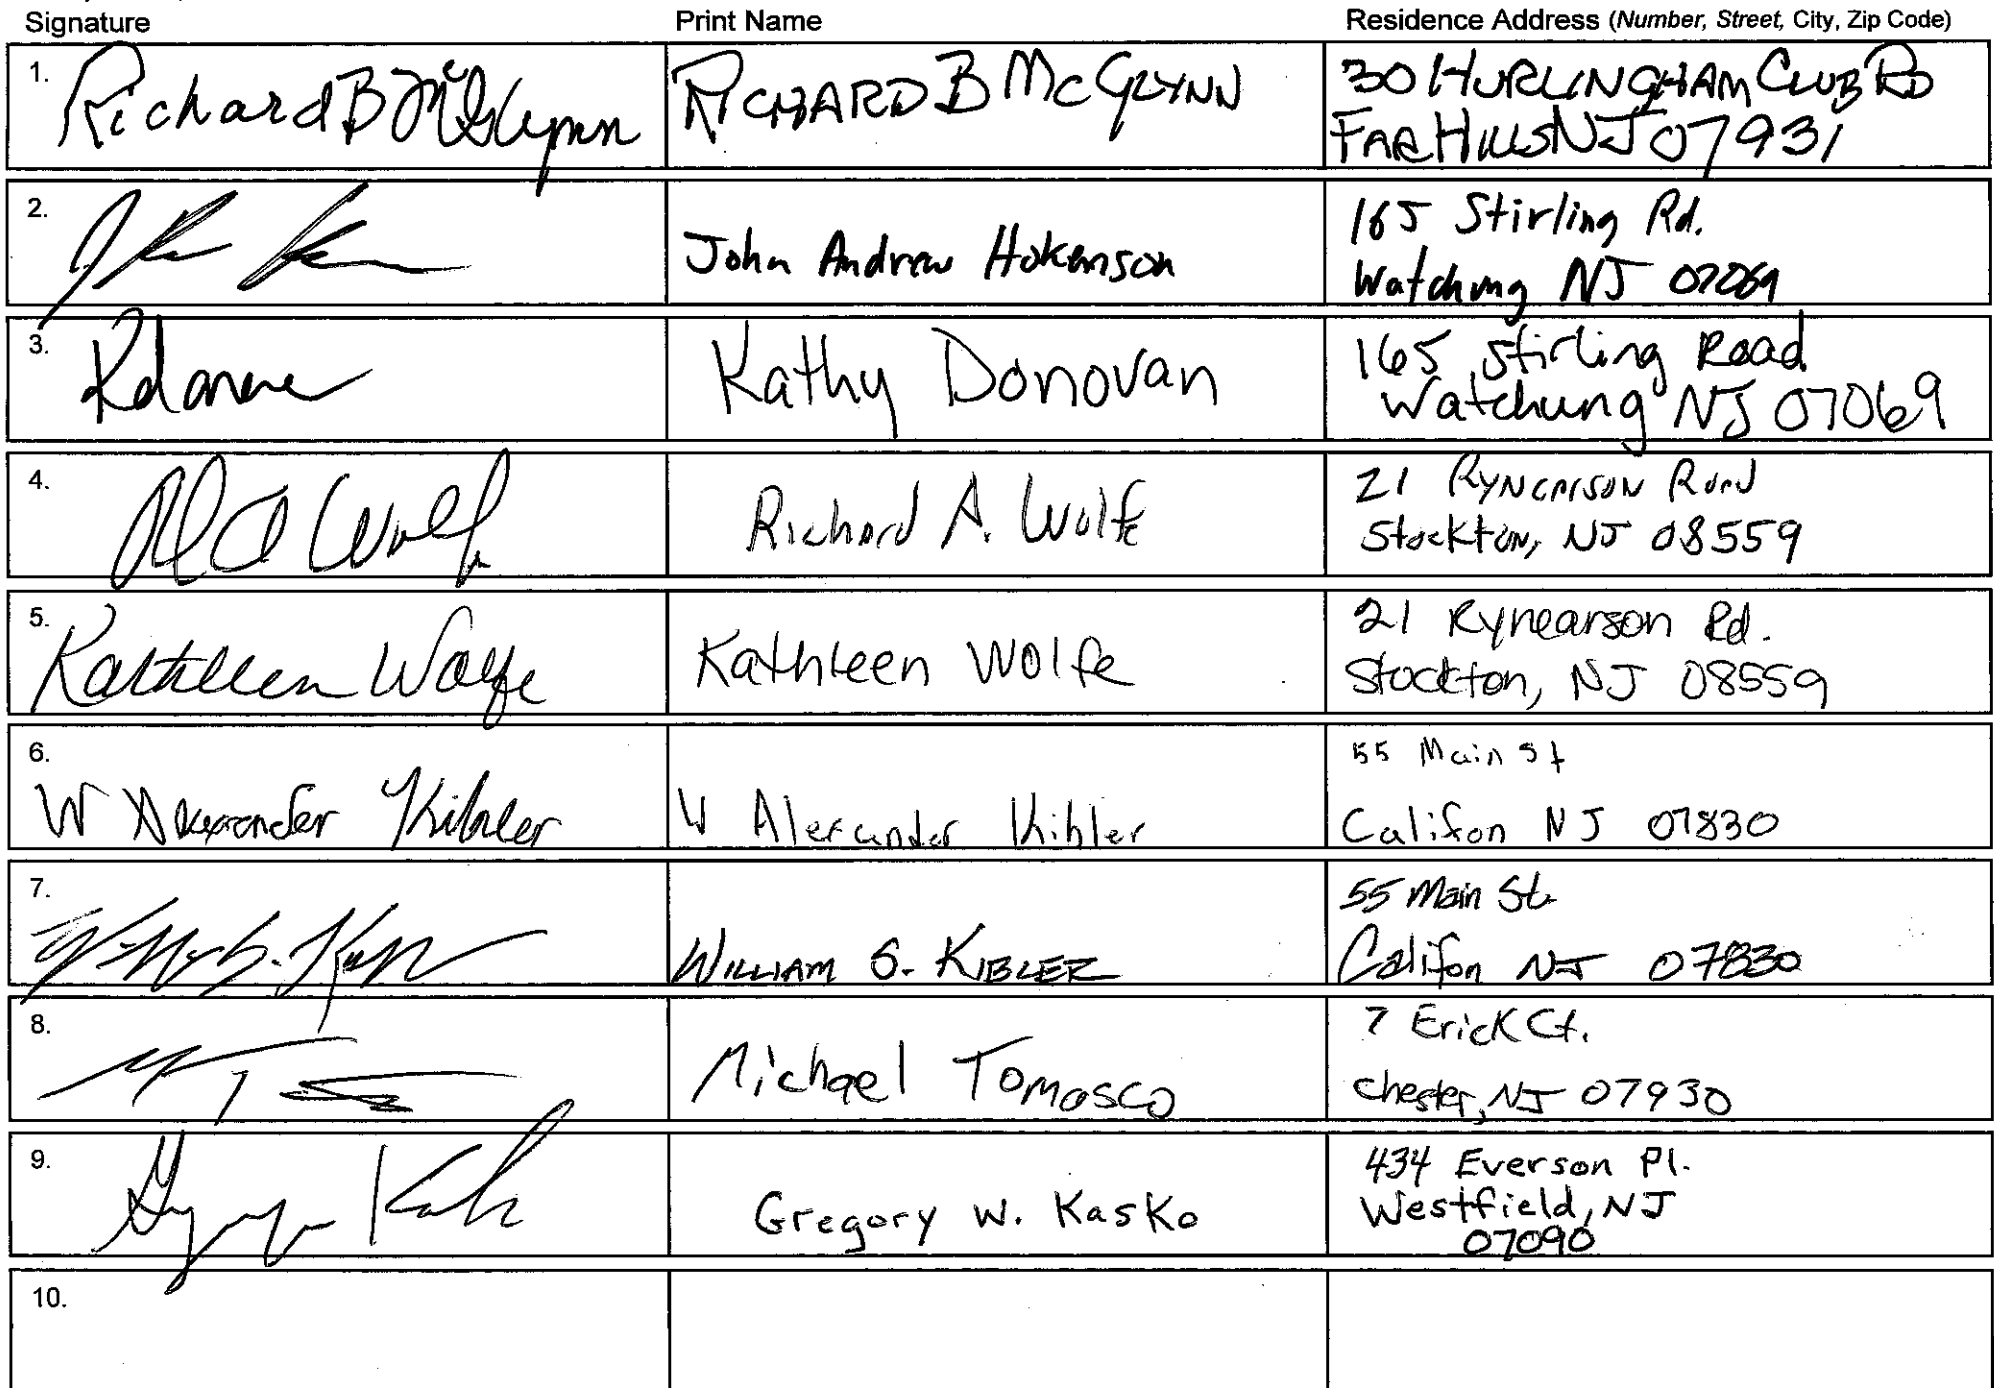 Signature Print Name Residence Address (Number, Street, City, Zip Code)
1. Richard B McGlynn RICHARD B McGLYNN 30 HURLINGHAM CLUB RD
FAR HILLS NJ 07931
2. John Andrew Hokenson 165 Stirling Rd.
Watchung NJ 07069
3. Kathy Donovan 165 Stirling Road
Watchung NJ 07069
4. R A Wolfe Richard A. Wolfe 21 Rynearson Road
Stockton, NJ 08559
5. Kathleen Wolfe Kathleen Wolfe 21 Rynearson Rd.
Stockton, NJ 08559
6. 55 Main St
W Alexander Kibler W Alexander Kibler Califon NJ 07830
7. 55 Main St.
WILLIAM S. KIBLER Califon NJ 07830
8. 7 Erick Ct.
Michael Tomasco Chester, NJ 07930
9. 434 Everson Pl.
Gregory W. Kasko Westfield, NJ
07090
10.